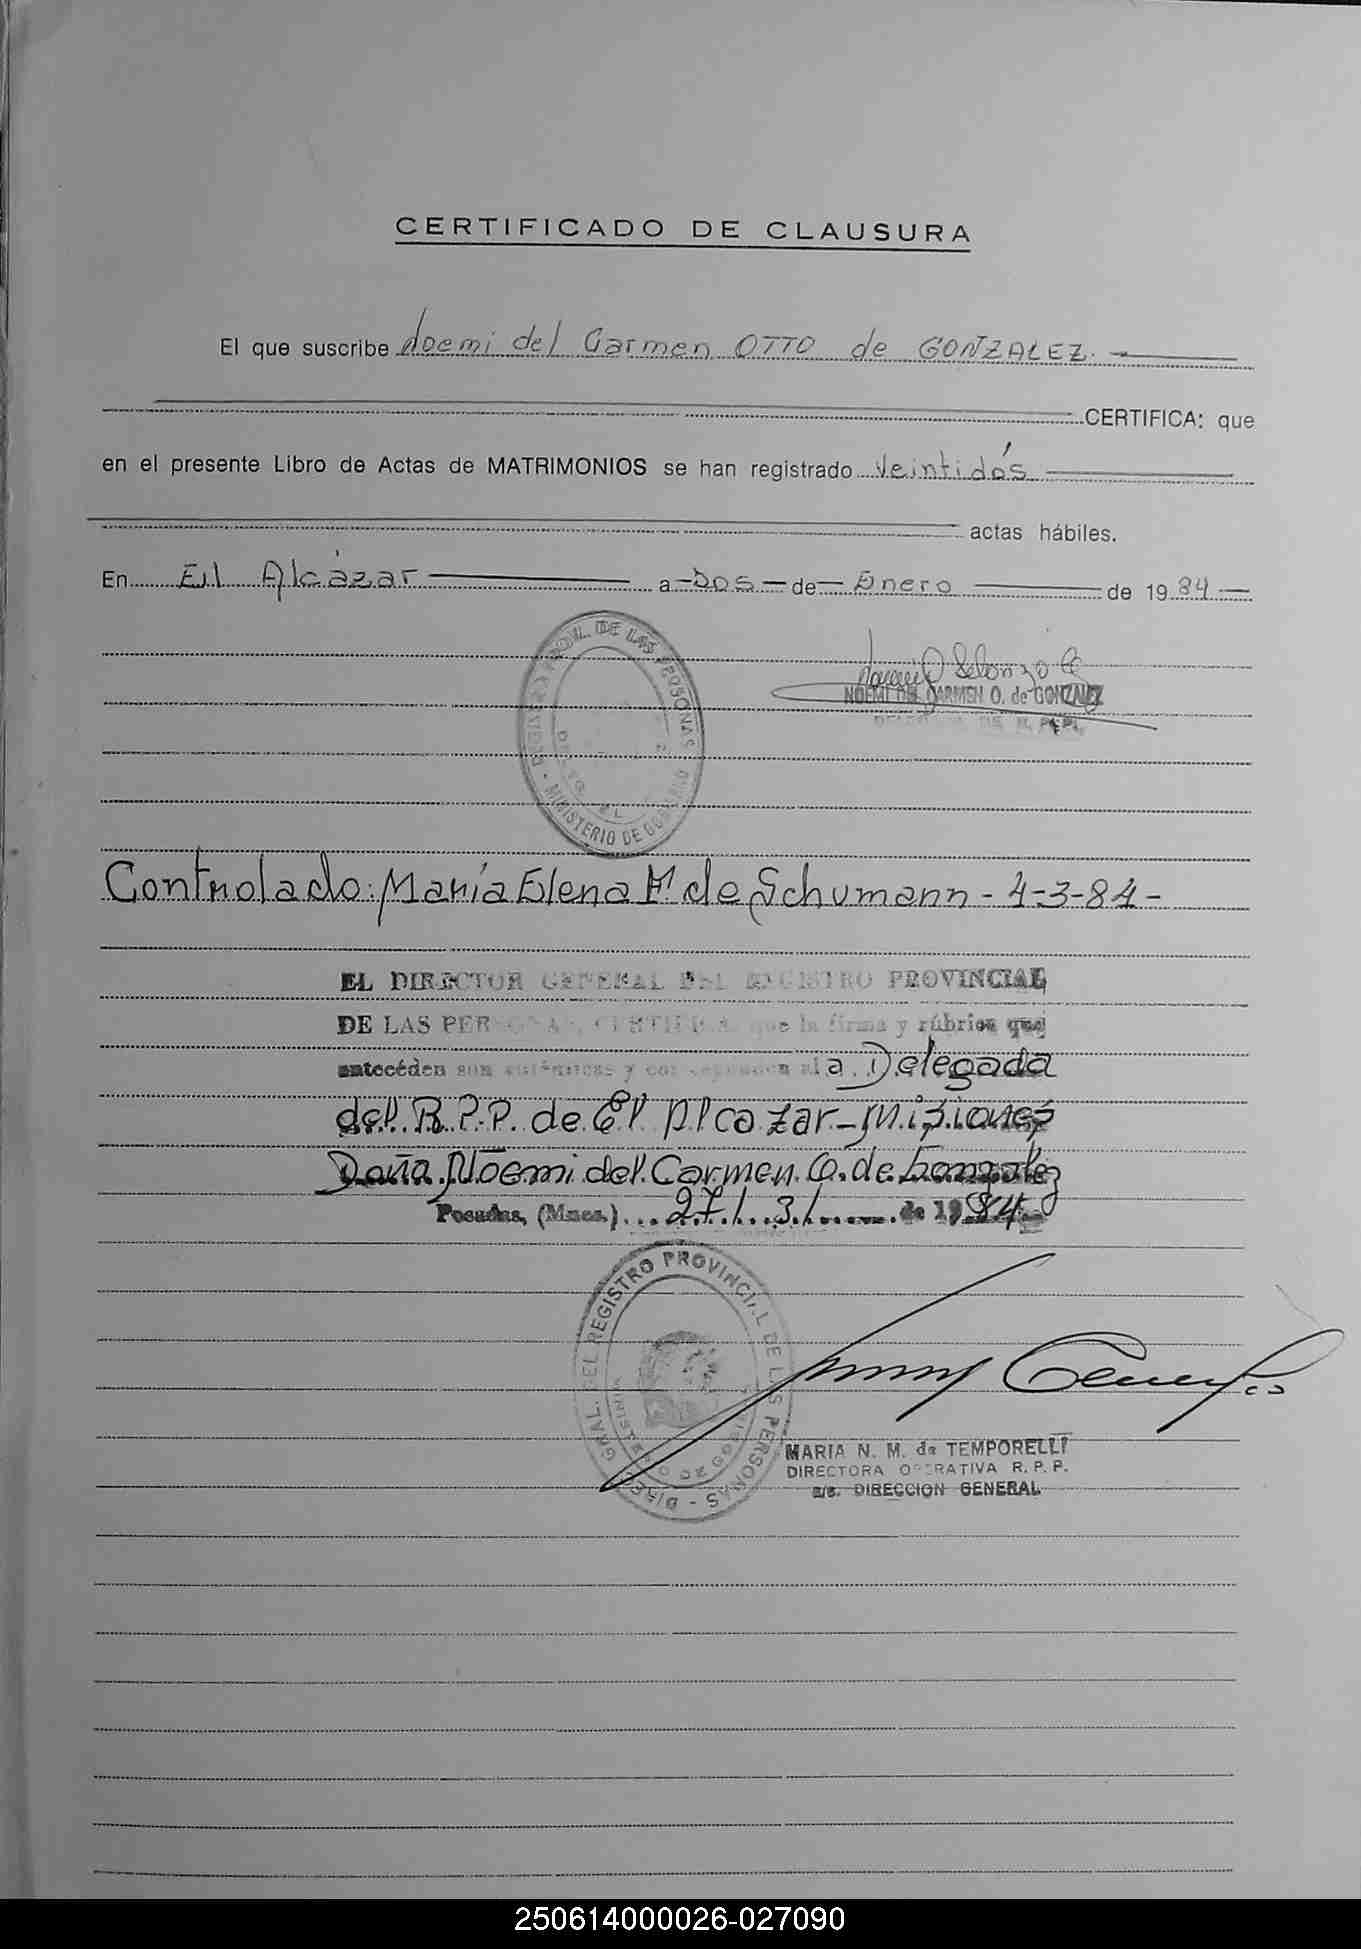 CERTIFICADO DE CLAUSURA
El que suscribe Noemi del Carmen OTTO de GONZALEZ.
CERTIFICA: que
en el presente Libro de Actas de MATRIMONIOS se han registrado Veintidós
actas hábiles.
En El Alcázar a Dos de Enero de 1984
NOEMI DEL CARMEN O. de GONZALEZ
MINISTERIO DE GOBIERNO
Controlado: María Elena M. de Schumann - 4-3-84 -
EL DIRECTOR GENERAL DEL REGISTRO PROVINCIAL
DE LAS PERSONAS, CERTIFICA que la firma y rúbrica que
antecéden son auténticas y corresponden al a Delegada
del R.P.P. de El Alcazar - Misiones
Doña Noemi del Carmen O. de Gonzalez
Posadas, (Mnes.) 27/3/ de 1984
DIREC. GRAL. DEL REGISTRO PROVINCIAL DE LAS PERSONAS
MINISTERIO DE GOBIERNO
MARIA N. M. de TEMPORELLI
DIRECTORA OPERATIVA R. P. P.
a/c. DIRECCION GENERAL
250614000026-027090